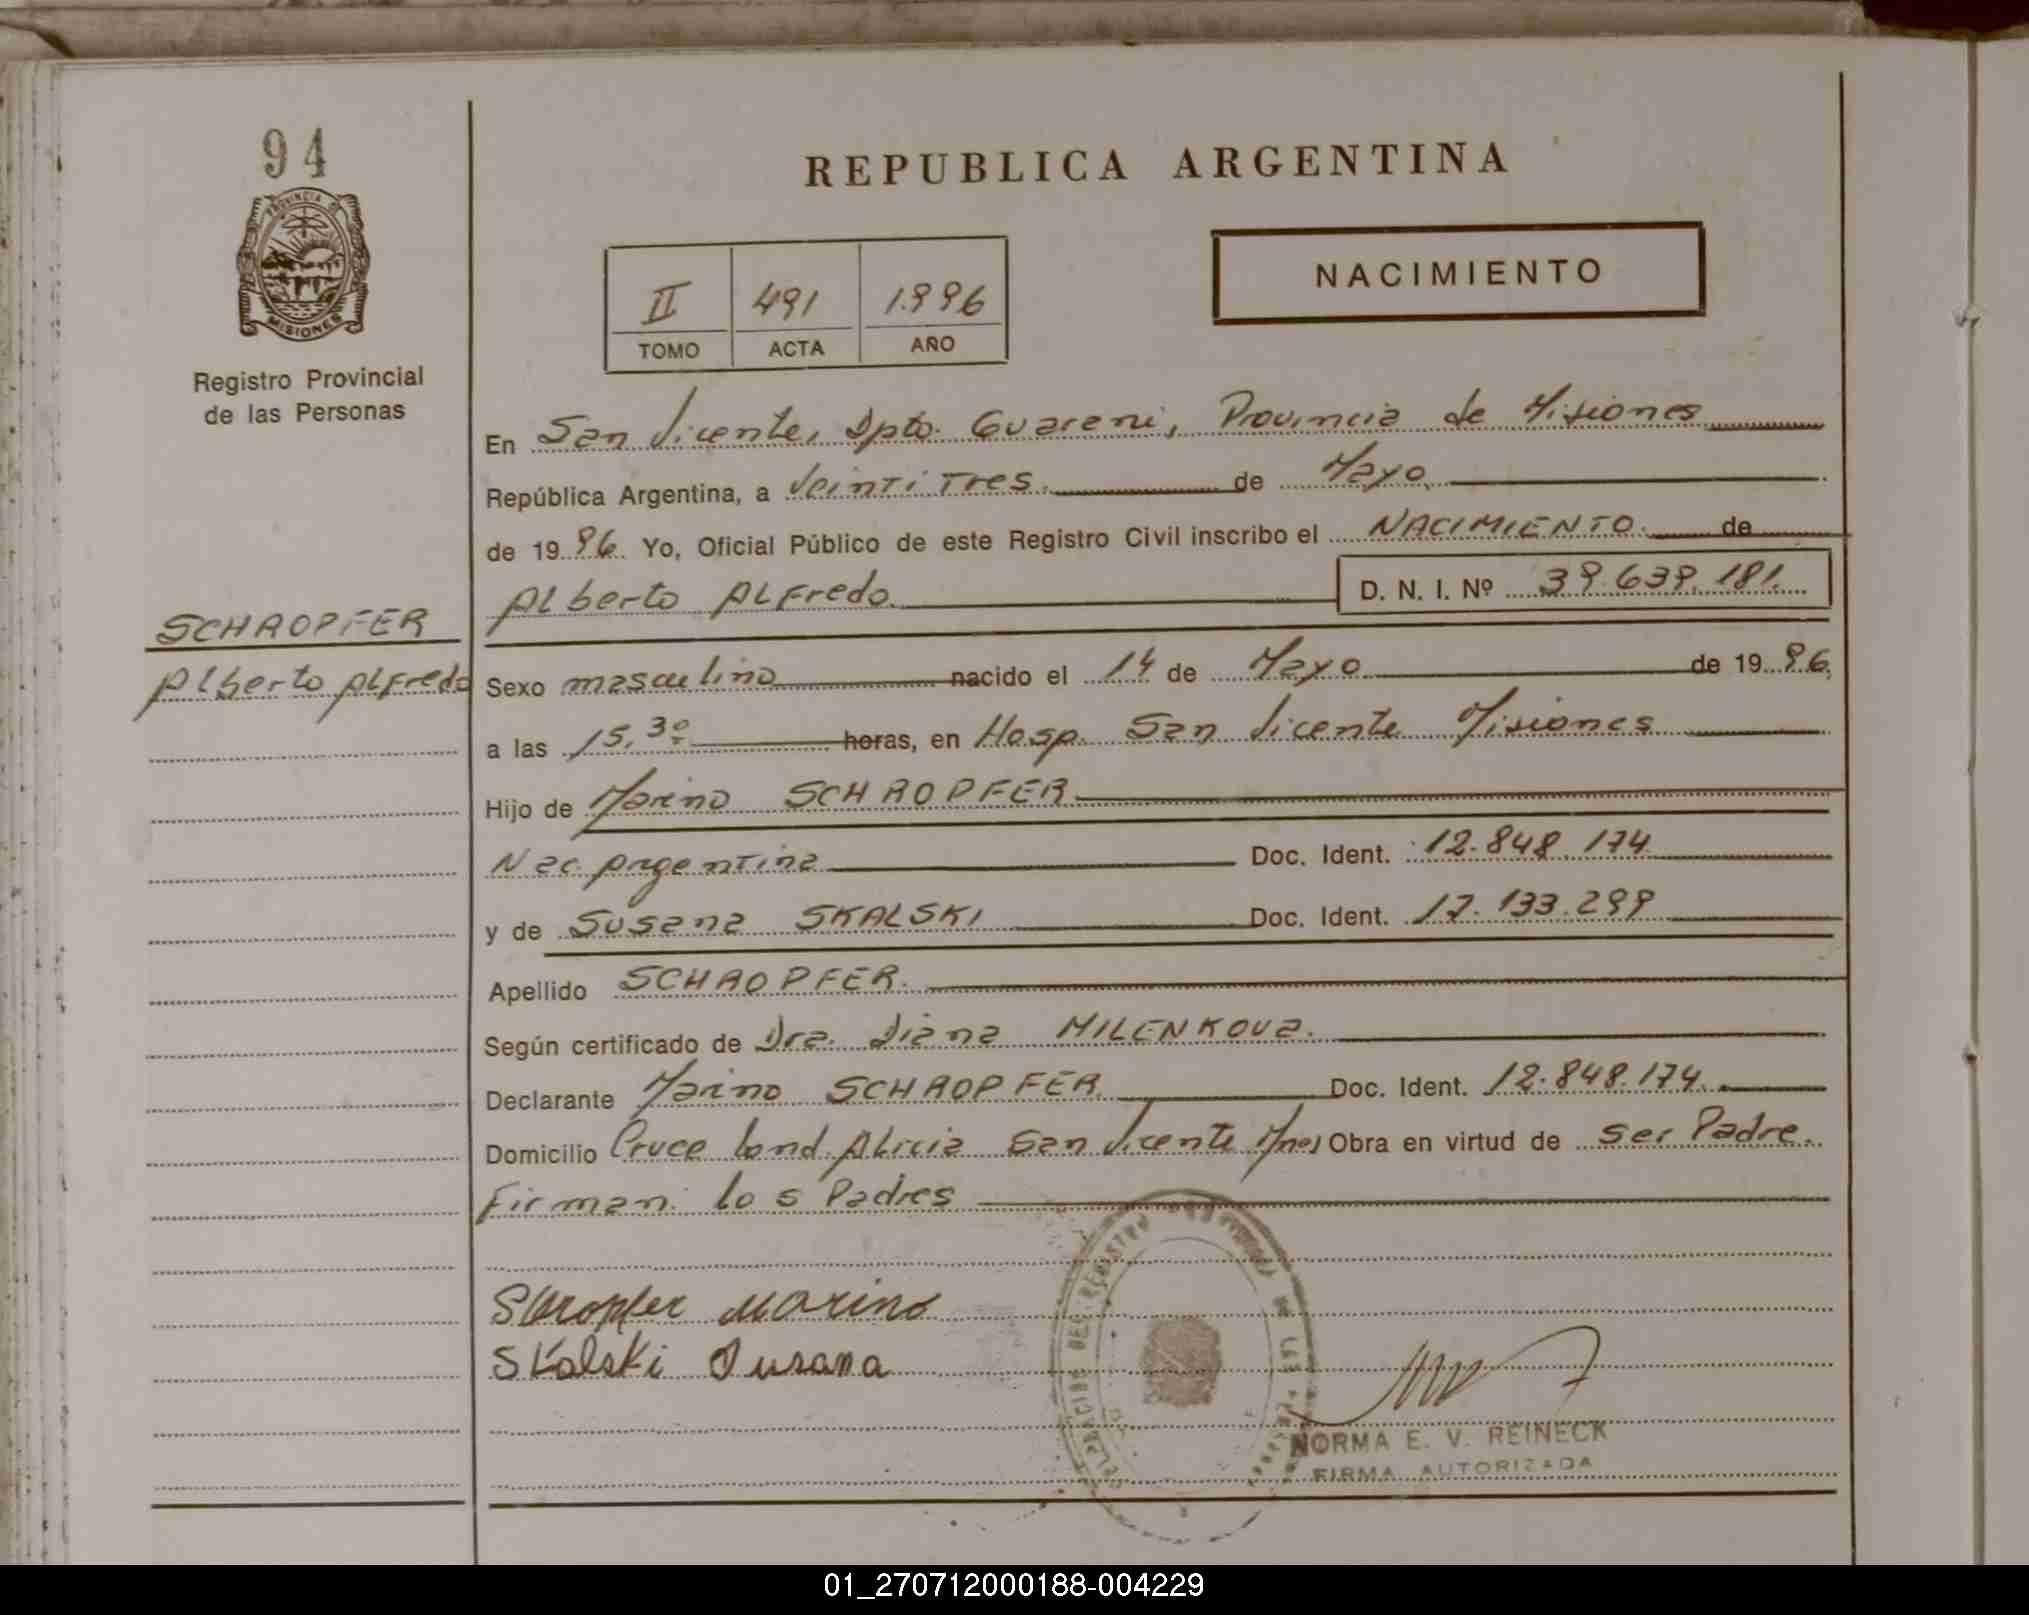 94
PROVINCIA DE
MISIONES
Registro Provincial
de las Personas
REPUBLICA ARGENTINA
II 491 1.996
TOMO ACTA AÑO
NACIMIENTO
En San Vicente, Dpto. Guarani, Provincia de Misiones
República Argentina, a Veinti Tres. de Mayo
de 19 96 Yo, Oficial Público de este Registro Civil inscribo el NACIMIENTO de
Alberto Alfredo. D. N. I. Nº 39.639.181.
SCHROPFER
Alberto Alfredo
Sexo masculino nacido el 14 de Mayo de 19 96,
a las 15,30 horas, en Hosp. San Vicente Misiones
Hijo de Marino SCHROPFER
Nac. Argentina Doc. Ident. 12.848.174
y de Susana SKALSKI Doc. Ident. 17.133.299
Apellido SCHROPFER.
Según certificado de Dra. Diana MILENKOVA.
Declarante Marino SCHROPFER. Doc. Ident. 12.848.174.
Domicilio Cruce Lond. Alicia San Vicente Mnes Obra en virtud de ser Padre.
Firman los Padres
Skropfer Marino
Skalski Susana
DELEGACION DEL REGISTRO PROVINCIAL DE LAS PERSONAS
NORMA E. V. REINECK
FIRMA AUTORIZADA
01_270712000188-004229